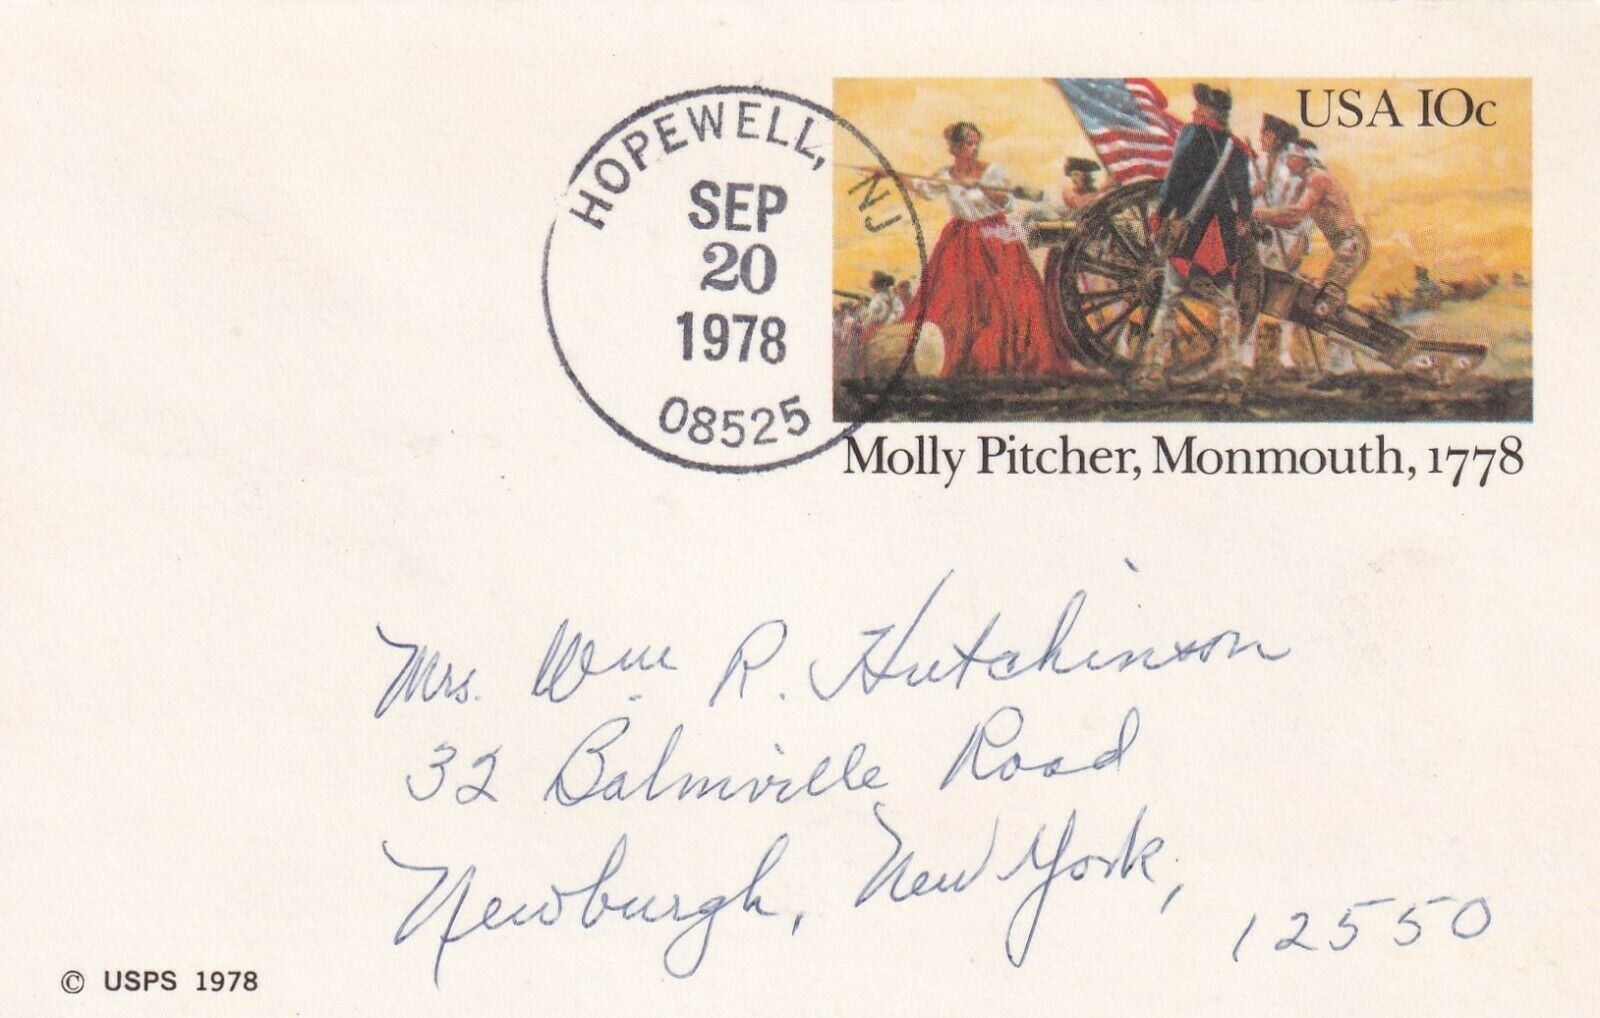 HOPEWELL, NJ
SEP
20
1978
08525
USA 10c
Molly Pitcher, Monmouth, 1778
Mrs. Wm. R. Hutchinson
32 Balmville Road
Newburgh, New York,
12550
© USPS 1978